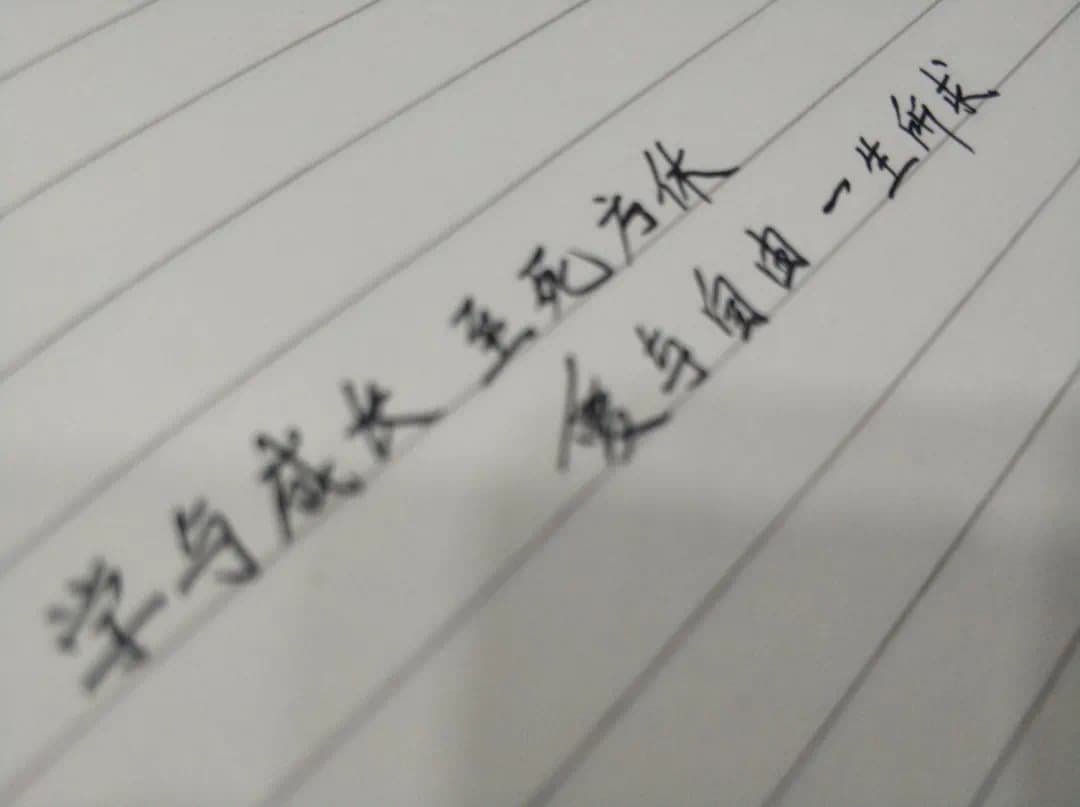 学与成长 至死方休
爱与自由 一生所求